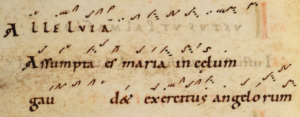 Alleluia
Assumpta es maria in celum
gau dæ exercitus angelorum